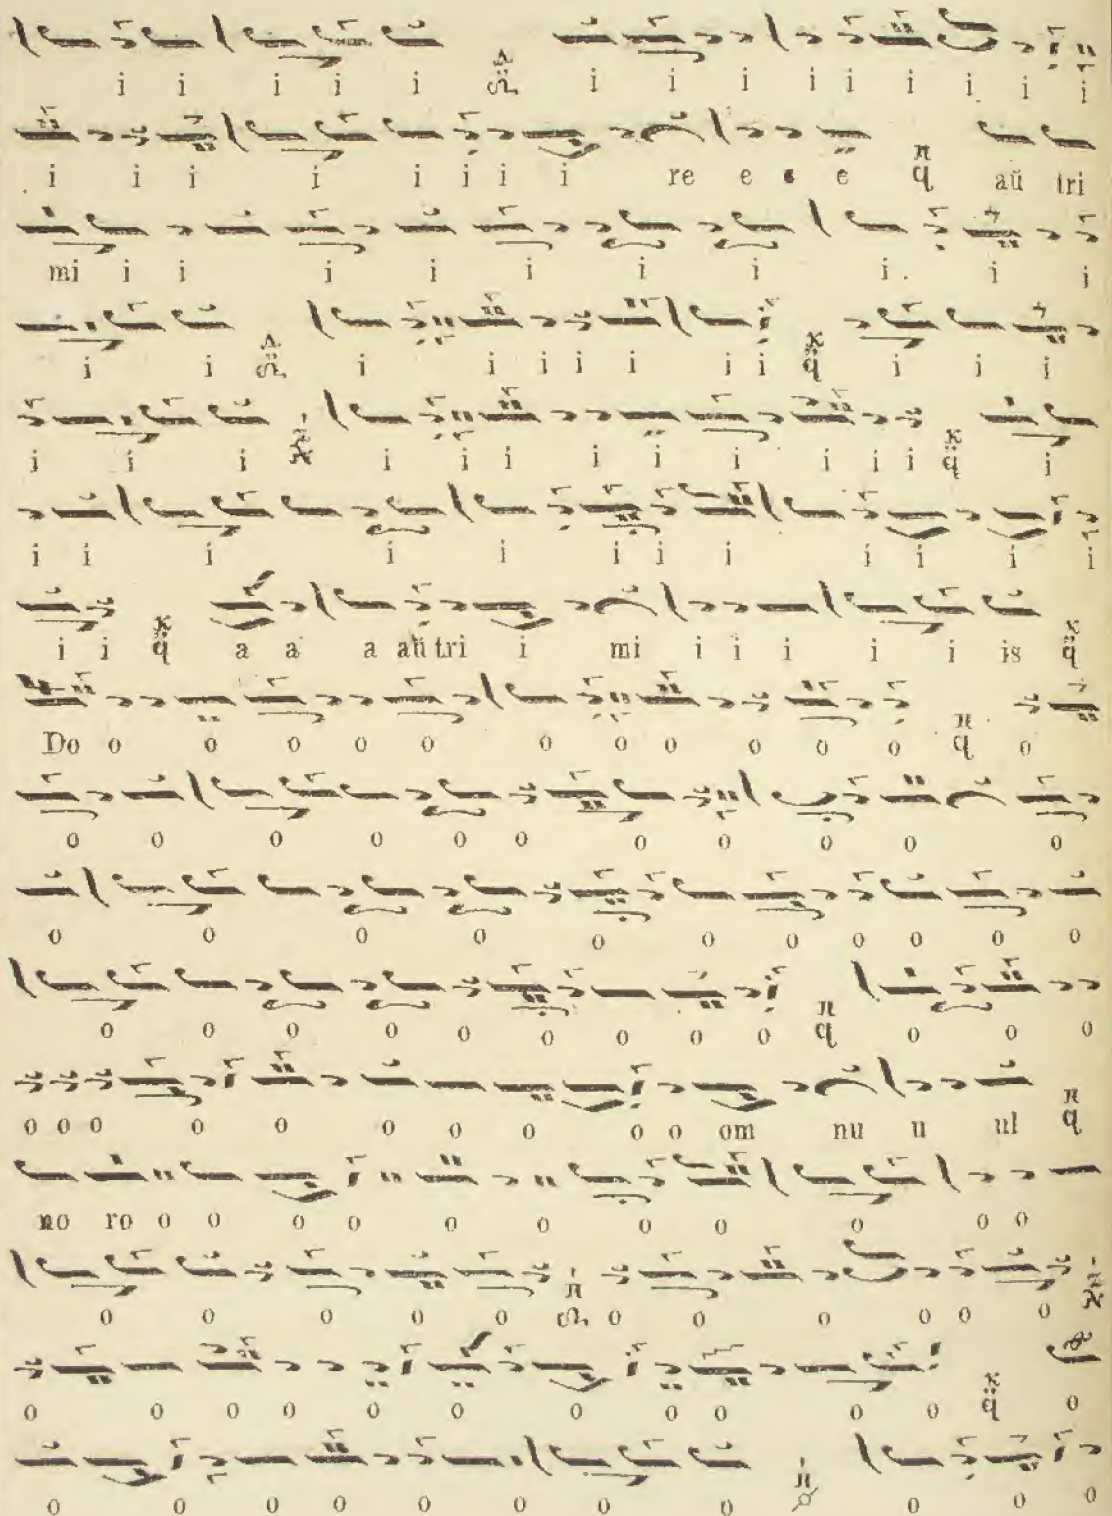 i i i i i i i i i i i i i i
i i i i i i i i re e e e aŭ tri
mi i i i i i i i i i i
i i i i i i i i i i i i
i i i i i i i i i i i i
i i i i i i i i i i i i
i i a a a aŭ tri i mi i i i i i is
Do o o o o o o o o o o o o
o o o o o o o o o o o
o o o o o o o o o o o
o o o o o o o o o o o o
o o o o o o o o o o om nu u ul
no ro o o o o o o o o o o o
o o o o o o o o o o o
o o o o o o o o o o o o
o o o o o o o o o o o o